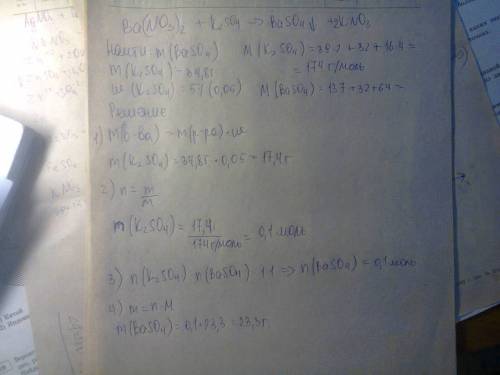 Ba(NO₃)₂ + K₂SO₄ => BaSO₄↓ + 2KNO₂
Найти: m(BaSO₄) M(K₂SO₄) = 39·2 + 32 + 16·4 =
m(K₂SO₄) = 34,8г = 174 г/моль
ω(K₂SO₄) = 5% (0,05) M(BaSO₄) = 137 + 32 + 64 =
Решение
1) M(в-ва) = M(р-ра) · ω
m(K₂SO₄) = 34,8г · 0,05 = 17,4г
2) n = m/m
m(K₂SO₄) = 17,4г / 174г/моль = 0,1 моль
3) n(K₂SO₄) n(BaSO₄) 1:1 => n(BaSO₄) = 0,1 моль
4) m = n·M
m(BaSO₄) = 0,1·23,3 = 23,3г